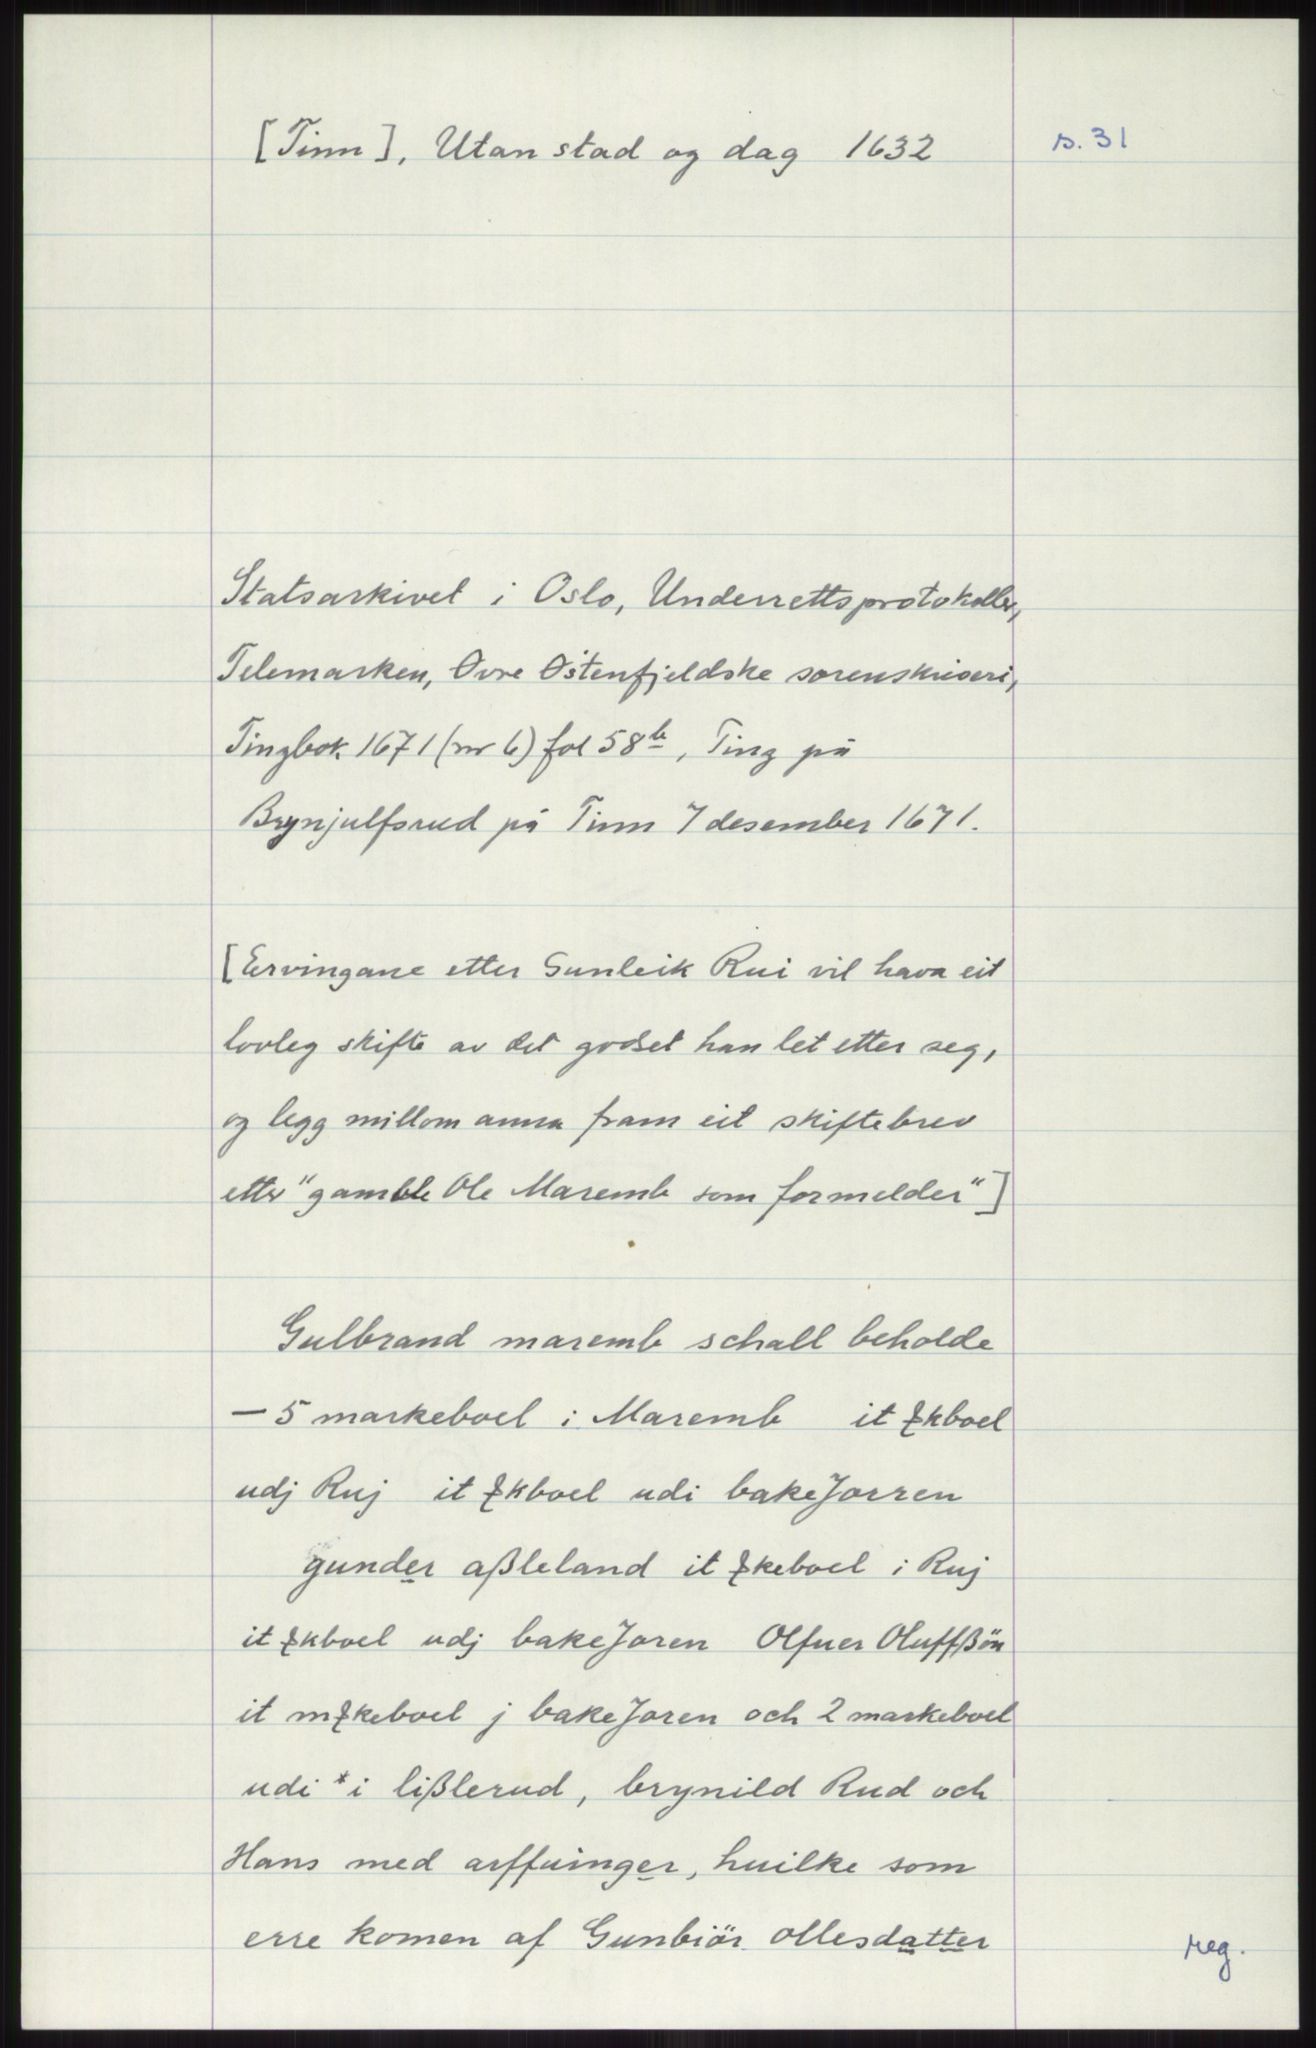 [Tinn], Utan stad og dag 1632
s. 31
Statsarkivet i Oslo, Underrettsprotokoller,
Telemarken, Øvre Østenfjeldske sorenskriveri,
Tingbok 1671 (nr 6) fol 58b, Ting på
Brynjulfsrud på Tinn 7 desember 1671.
[Ervingane etter Gunleik Rui vil hava eit
lovleg skifte av det godset han let etter seg,
og legg millom anna fram eit skiftebrev
etter "gamble Ole Maremb som formelder"]
Gulbrand maremb schall beholde
— 5 markeboel i Maremb it ꝷkboel
udj Ruj it ꝷkboel udi bakeJorren
gunder aßleland it ꝷkeboel i Ruj
it ꝷkboel udj bakeJoren Olfuer Oluffßön
it mꝷkeboel j bakeJoren och 2 markeboel
udi * i lißlerud, brynild Rud och
Hans med arffuinger, huilke som
erre komen af Gunbiör ollesdatter
reg.